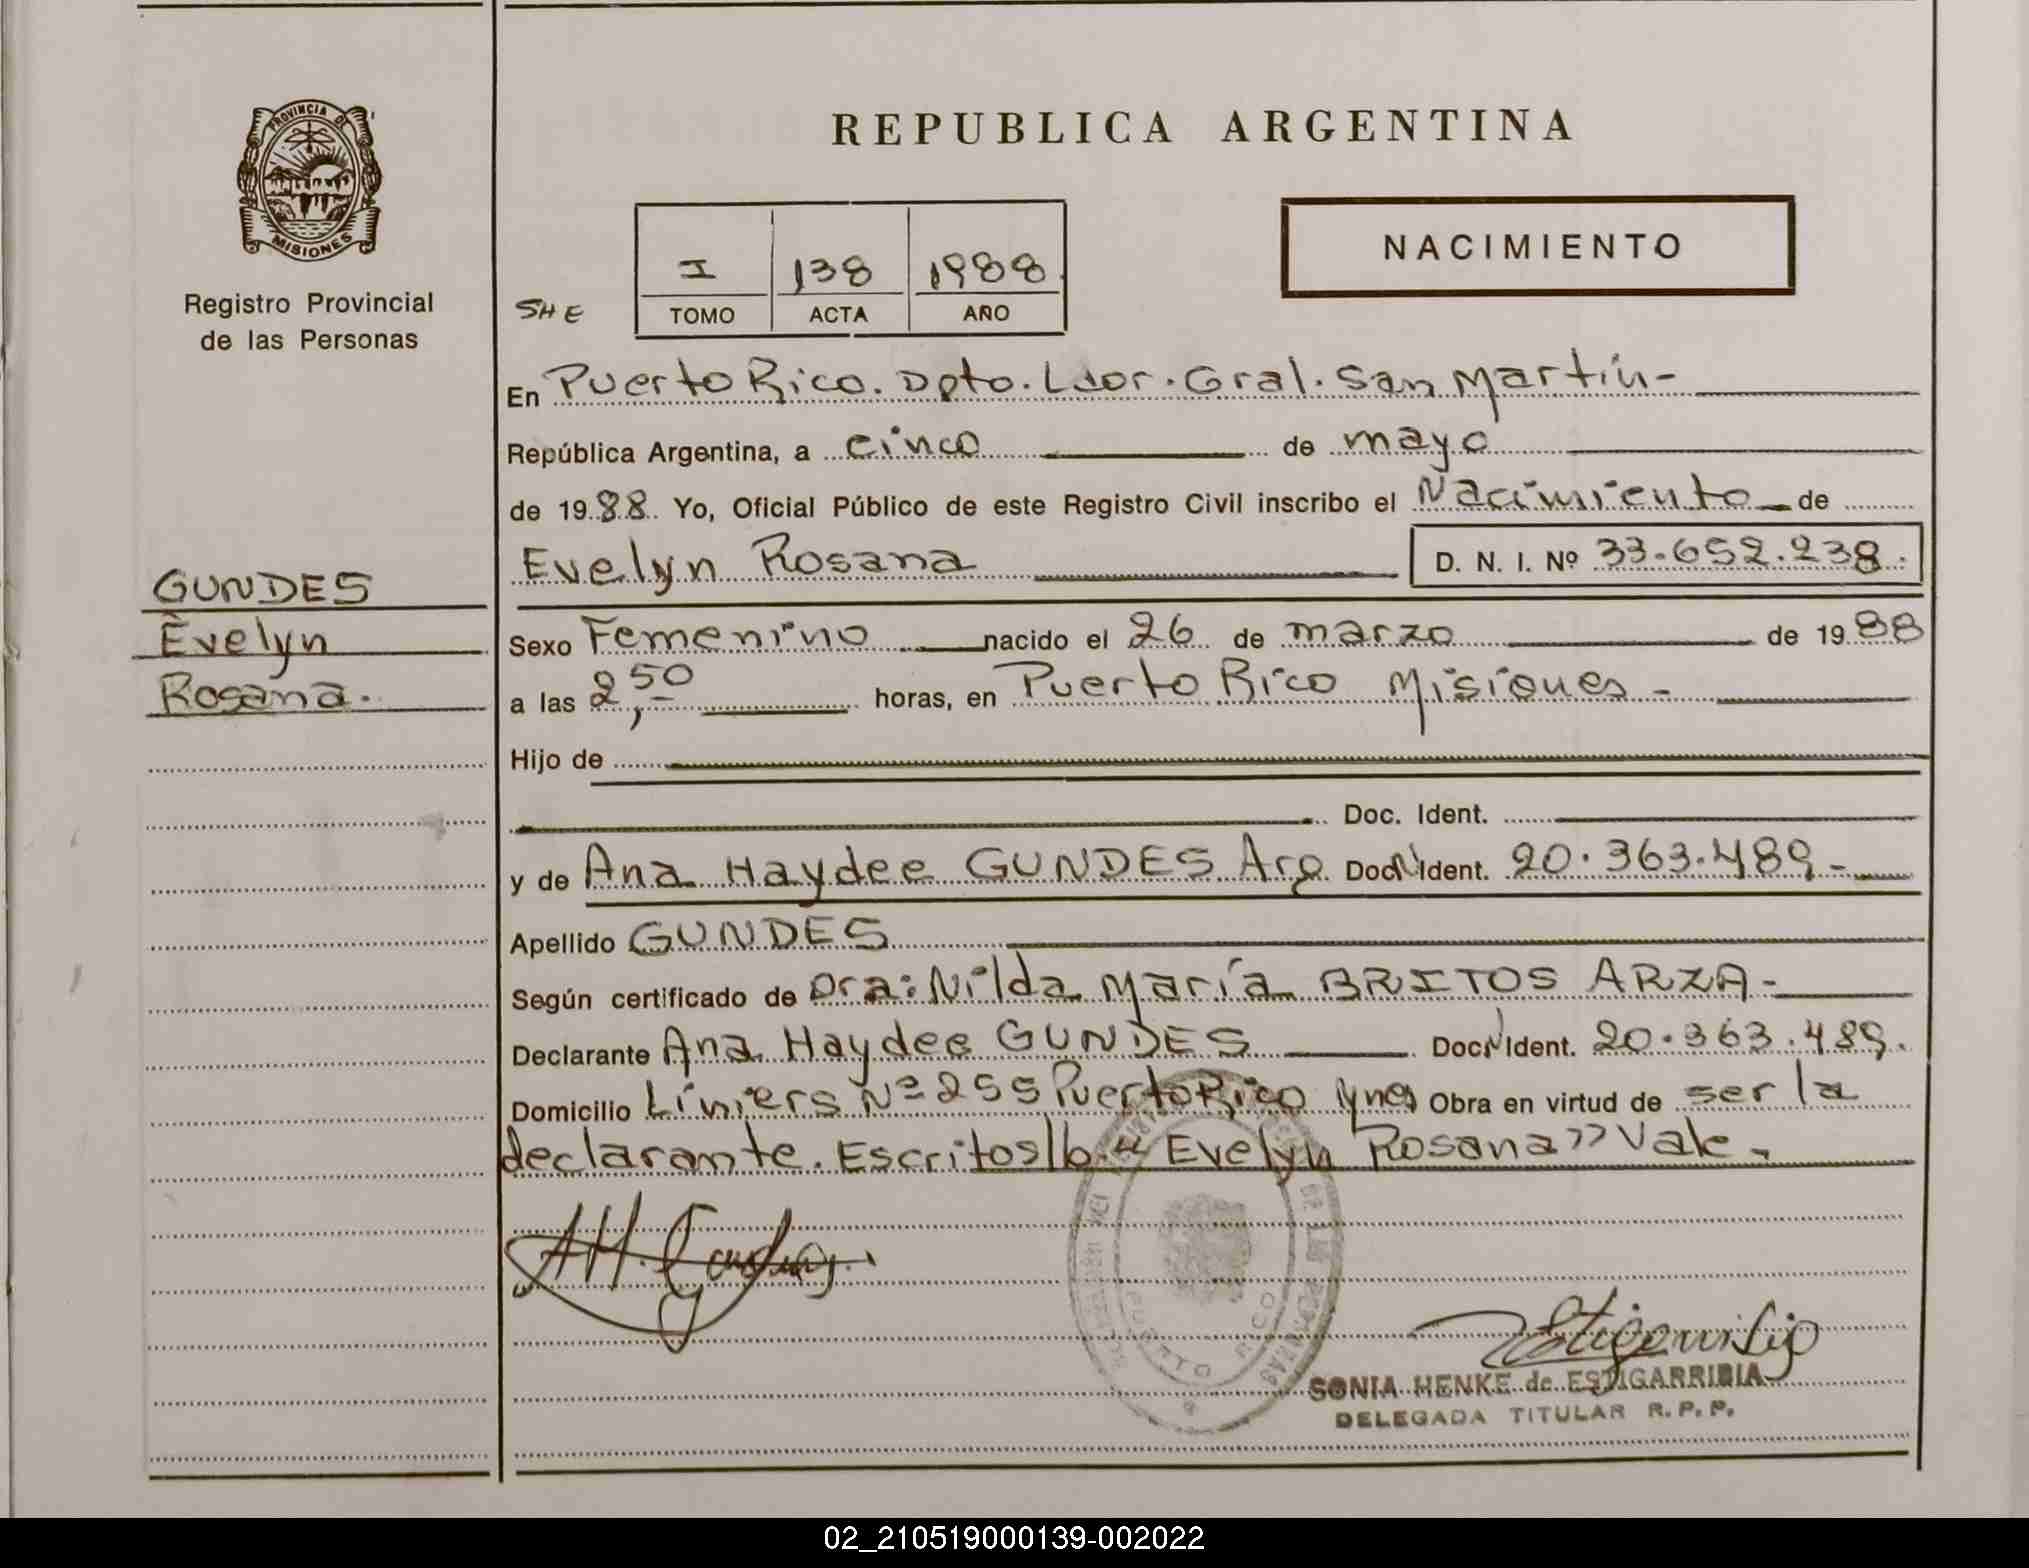 PROVINCIA DE
MISIONES
Registro Provincial
de las Personas
GUNDES
Evelyn
Rosana.
REPUBLICA ARGENTINA
NACIMIENTO
I 138 1988
SHE TOMO ACTA AÑO
En Puerto Rico. Dpto. Ldor. Gral. San Martín-
República Argentina, a cinco de mayo
de 1988 Yo, Oficial Público de este Registro Civil inscribo el Nacimiento de
Evelyn Rosana D. N. I. Nº 33.652.238.
Sexo Femenino nacido el 26 de marzo de 1988
a las 2,50 horas, en Puerto Rico Misiones-
Hijo de
Doc. Ident.
y de Ana Haydee GUNDES Arg Doc. Ident. 20.363.489-
Apellido GUNDES
Según certificado de Dra: Nilda María BRITOS ARZA-
Declarante Ana Haydee GUNDES Doc. Ident. 20.363.489.
Domicilio Liniers Nº 255 Puerto Rico Mnes Obra en virtud de ser la
declarante. Escritos/b. "Evelyn Rosana" Vale.
PUERTO RICO
SONIA HENKE de ESTIGARRIBIA
DELEGADA TITULAR R. P. P.
02_210519000139-002022